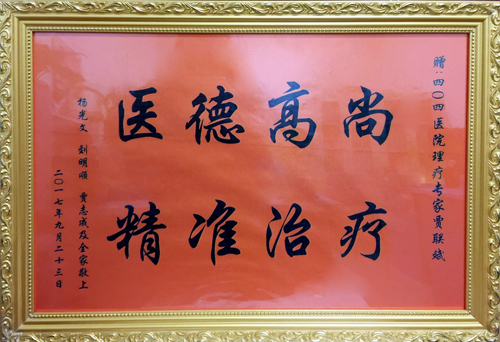 赠:四〇四医院理疗专家贾联斌
医德高尚
精准治疗
杨光文 刘明顺 贾志成及全家敬上
二〇一七年九月二十三日